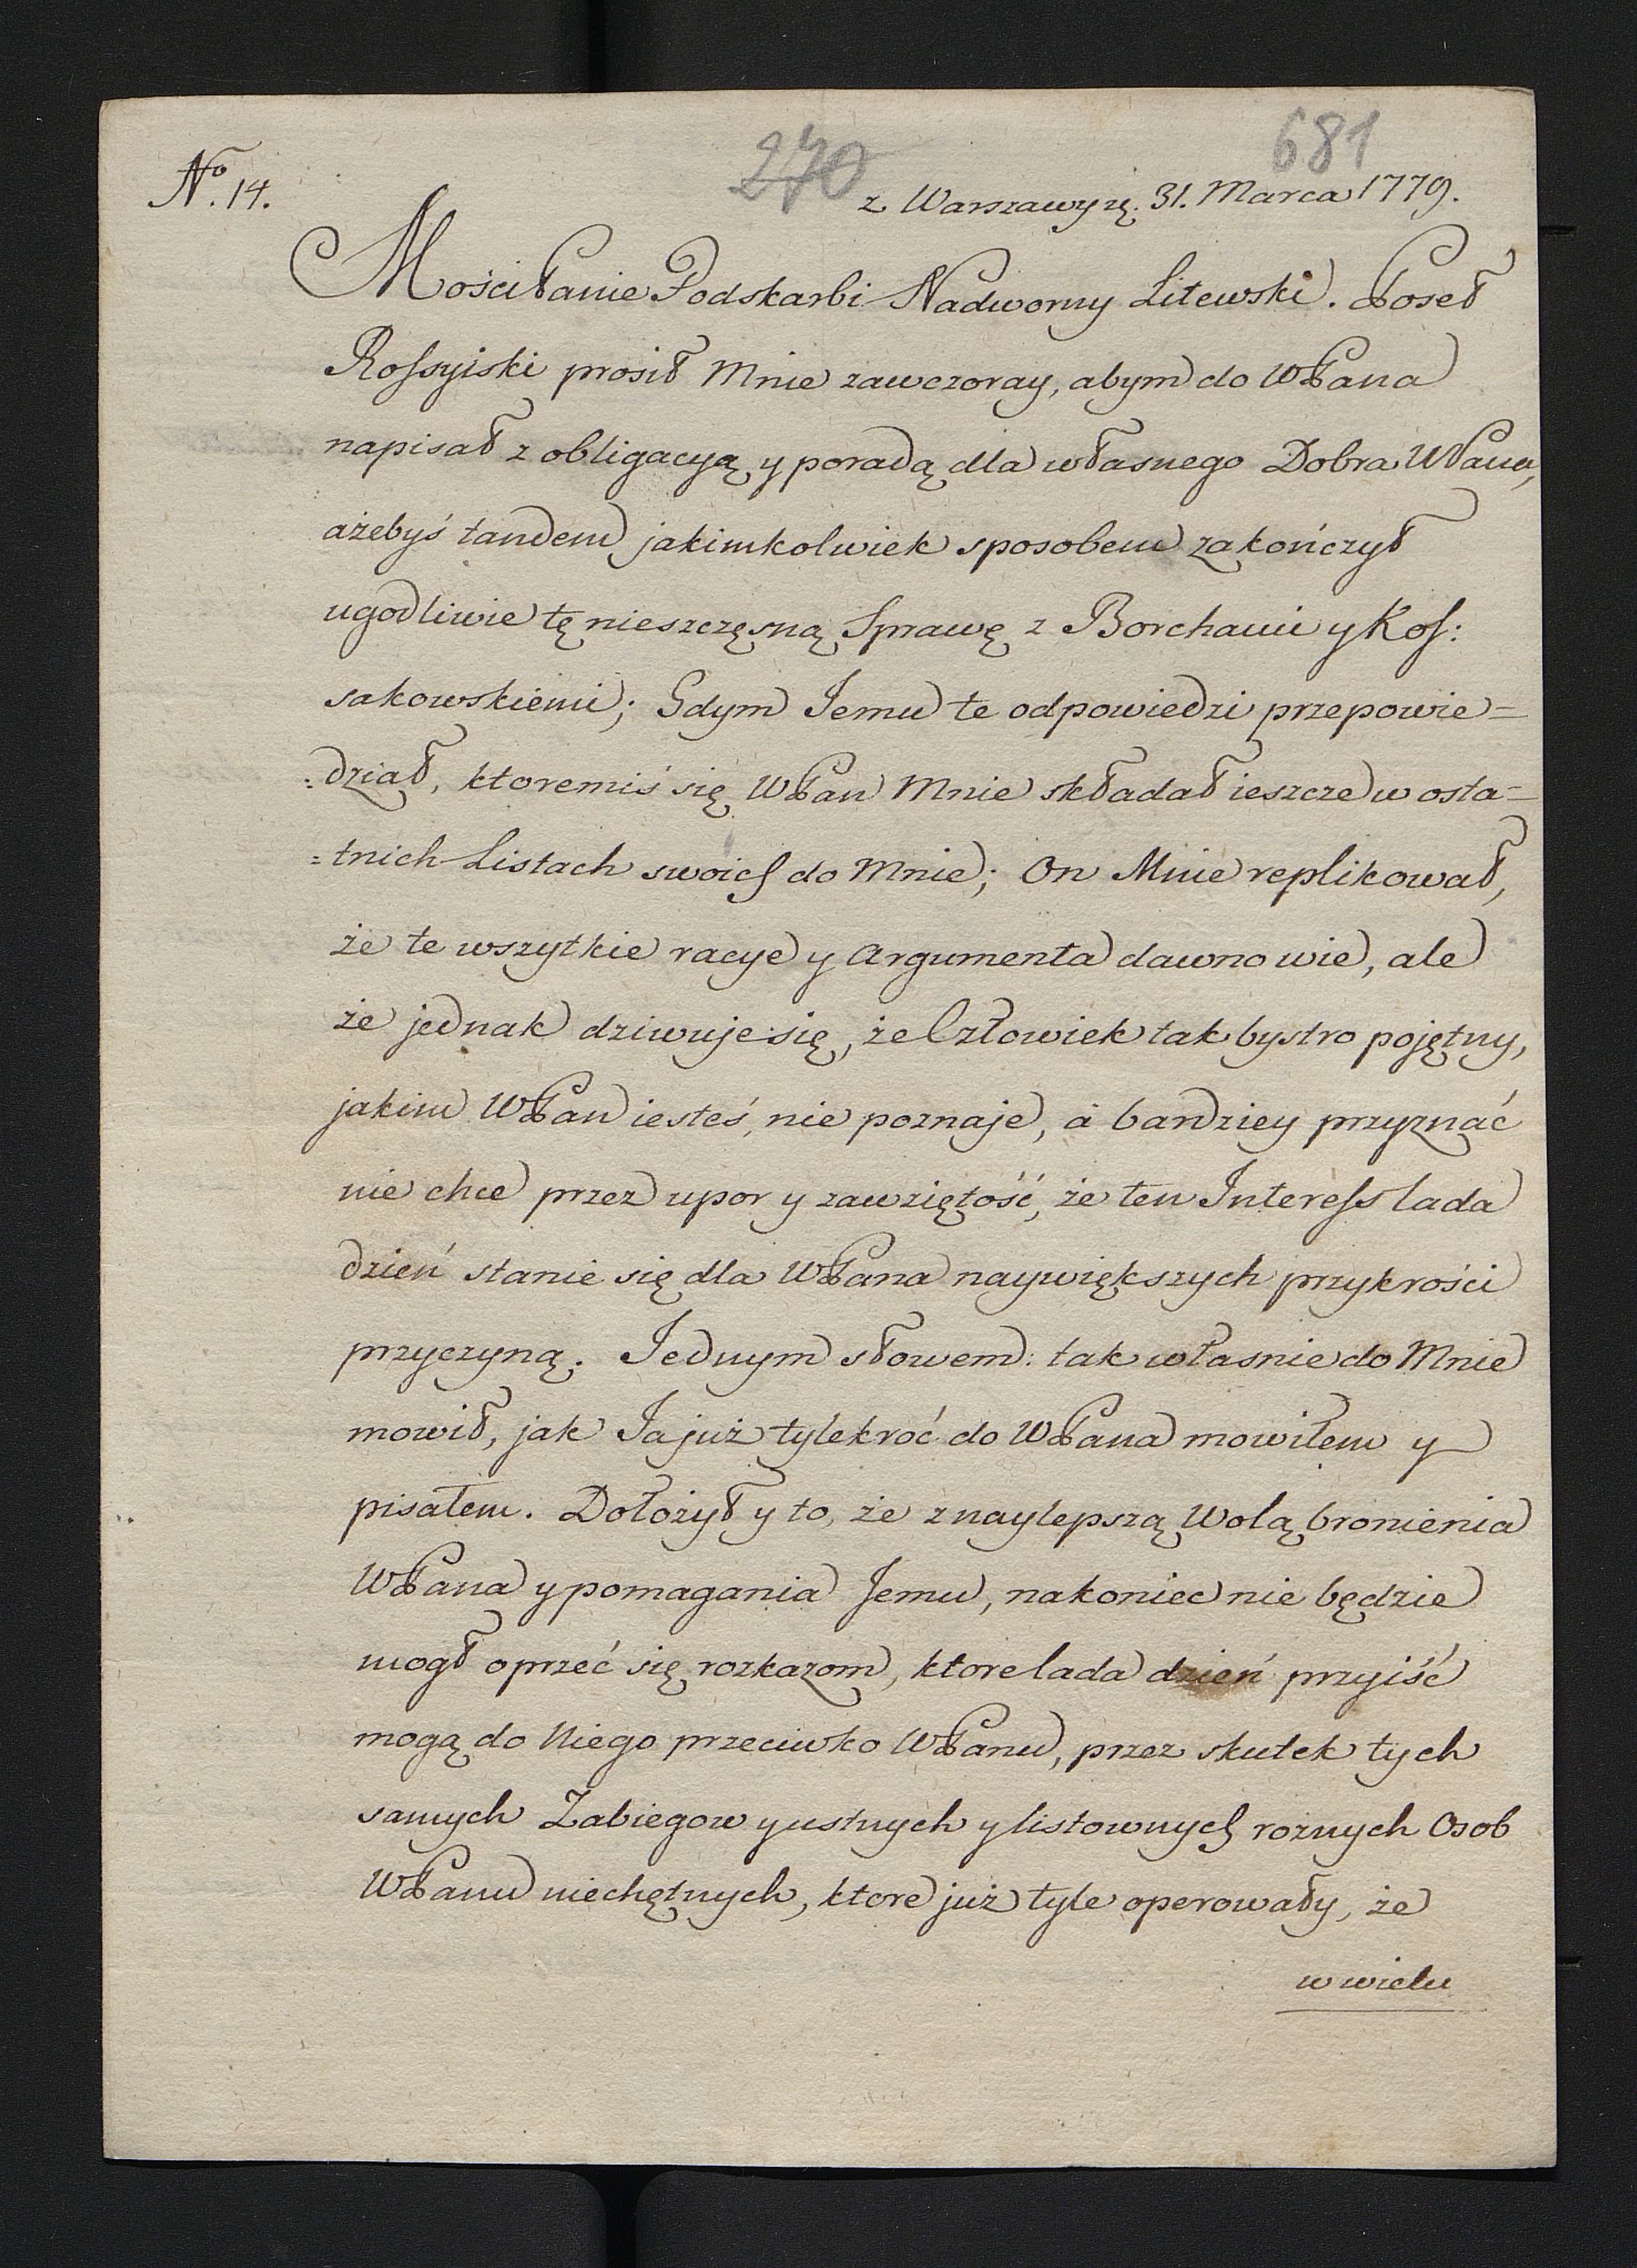 270
681
No. 14.
z Warszawy rę. 31. Marca 1779.
Mości Panie Podskarbi Nadworny Litewski. Poseł
Rossyiski prosił Mnie zawczoray, abym do WPana
napisał z obligacyą y poradą dla własnego Dobra WPana,
ażebyś tandem jakimkolwiek sposobem zakończył
ugodliwie tę nieszczęsną Sprawę z Borchami y Kos:
sakowskiemi; Gdym Jemu te odpowiedzi przepowie=
:dział, ktoremiś się WPan Mnie składał ieszcze w osta=
=tnich Listach swoich do Mnie; On Mnie replikował,
że te wszytkie racye y Argumenta dawno wie, ale
że jednak dziwuje się, że Człowiek tak bystro pojętny,
jakim WPan iesteś, nie poznaje, a bardziey przyznać
nie chce przez upor y zawziętość, że ten Interess lada
dzień stanie się dla WPana naywiększych przykrości
przyczyną. Jednym słowem: tak własnie do Mnie
mowił, jak Ja już tylekroć do WPana mowiłem y
pisałem. Dołożył y to, że z naylepszą Wolą bronienia
WPana y pomagania Jemu, nakoniec nie będzie
mogł oprzeć się rozkazom, ktore lada dzień przyiść
mogą do Niego przeciwko WPanu, przez skutek tych
samych Zabiegow y ustnych y listownych rożnych Osob
WPanu niechętnych, ktore już tyle operowały, że
w wielu